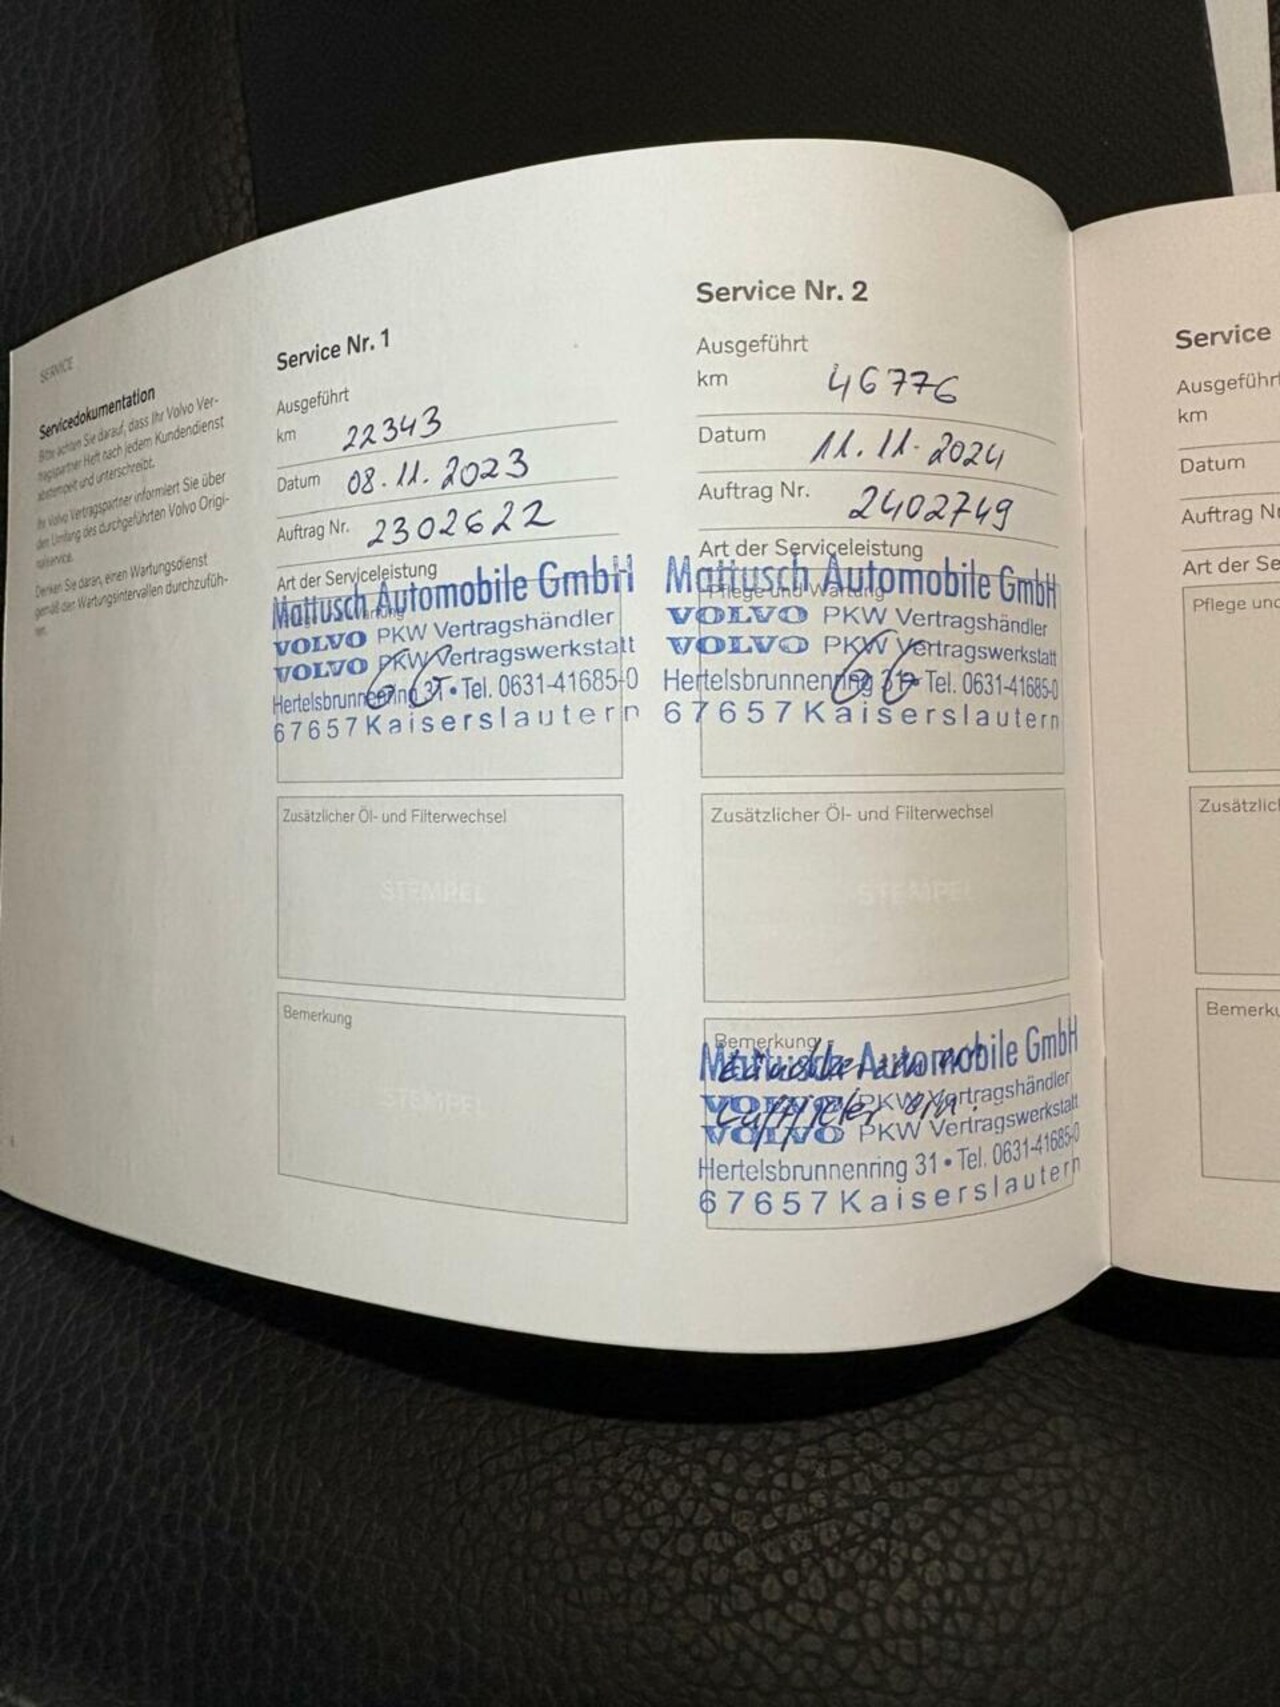 SERVICE
Servicedokumentation
Bitte achten Sie darauf, dass Ihr Volvo Ver-
tragspartner Heft nach jedem Kundendienst
abstempelt und unterschreibt.
Ihr Volvo Vertragspartner informiert Sie über
den Umfang des durchgeführten Volvo Origi-
nalservice.
Denken Sie daran, einen Wartungsdienst
gemäß den Wartungsintervallen durchzufüh-
ren.
Service Nr. 1
Ausgeführt
km 22343
Datum 08.11.2023
Auftrag Nr. 2302622
Art der Serviceleistung
Mattusch Automobile GmbH
VOLVO PKW Vertragshändler
VOLVO PKW Vertragswerkstatt
Hertelsbrunnenring 31 • Tel. 0631-41685-0
67657 Kaiserslautern
Zusätzlicher Öl- und Filterwechsel
STEMPEL
Bemerkung
STEMPEL
Service Nr. 2
Ausgeführt
km 46776
Datum 11.11.2024
Auftrag Nr. 2402749
Art der Serviceleistung
Pflege und Wartung
Mattusch Automobile GmbH
VOLVO PKW Vertragshändler
VOLVO PKW Vertragswerkstatt
Hertelsbrunnenring 31 • Tel. 0631-41685-0
67657 Kaiserslautern
Zusätzlicher Öl- und Filterwechsel
STEMPEL
Bemerkung
Mattusch Automobile GmbH
VOLVO PKW Vertragshändler
Luftfilter
VOLVO PKW Vertragswerkstatt
Hertelsbrunnenring 31 • Tel. 0631-41685-0
67657 Kaiserslautern
Service
Ausgeführt
km
Datum
Auftrag Nr
Art der Se
Pflege und
Zusätzlic
Bemerku